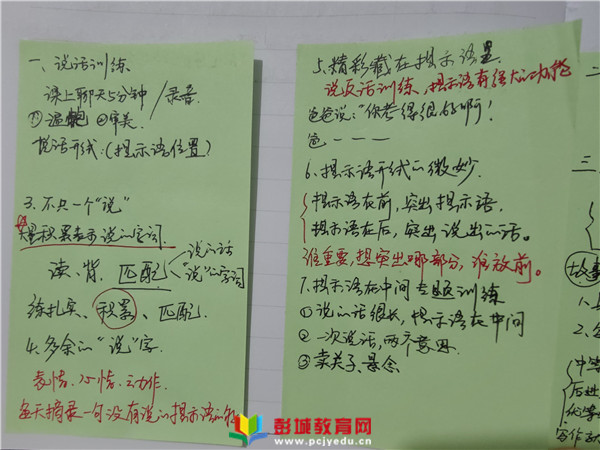 一、说话训练
课上聊天5分钟/录音
① ②审美
说话形式：(提示语位置)
3. 不只一个"说"
积累表示说的字词
读、背、匹配
说的话
"说"的字词
练扎实、积累、匹配
4. 多余的"说"字
表情、心情、动作
每天摘录一句没有说的提示语的
5、精彩藏在提示语里
说反话训练，提示语有强大的功能
爸爸说："你考得很好啊！
爸———
6、提示语形式的微妙
提示语在前，突出提示语.
提示语在后，突出说出的话。
谁重要，想突出哪部分，谁放前。
7.提示语在中间专题训练
①说的话很长，提示语在中间
②一次说话，两个意思
③卖关子、悬念
二
三
故事
1、
2、
中等
后进
优等生
写作
彭城教育网
www.pcjyedu.cn